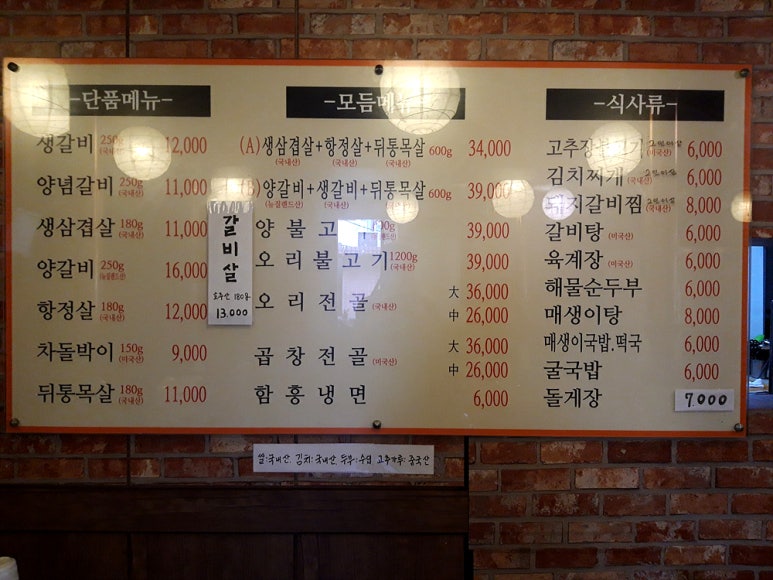 -단품메뉴-
생갈비 250g (국내산) 12,000
양념갈비 250g (국내산) 11,000
생삼겹살 180g (국내산) 11,000
양갈비 250g (뉴질랜드산) 16,000
항정살 180g (국내산) 12,000
차돌박이 150g (미국산) 9,000
뒤통목살 180g (국내산) 11,000
갈비살
호주산 180g
13.000
-모듬메뉴-
(A) 생삼겹살+항정살+뒤통목살 600g 34,000
(국내산) (국내산) (국내산)
(B) 양갈비+생갈비+뒤통목살 600g 39,000
(뉴질랜드산) (국내산) (국내산)
양불고 39,000
오리불고기 1200g (국내산) 39,000
오리전골 (국내산) 大 36,000
中 26,000
곱창전골 (미국산) 大 36,000
中 26,000
함흥냉면 6,000
-식사류-
고추장 (미국산) 6,000
김치찌개 (국내산) 6,000
돼지갈비찜 (국내산) 8,000
갈비탕 (미국산) 6,000
육계장 (미국산) 6,000
해물순두부 6,000
매생이탕 8,000
매생이국밥.떡국 6,000
굴국밥 6,000
돌게장 7.000
쌀:국내산, 김치:국내산, 두부:수입, 고추가루:중국산